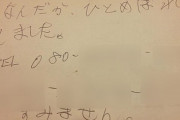 なんだか、ひとめぼれ
しました。
TEL 080-
-
-
すみません。